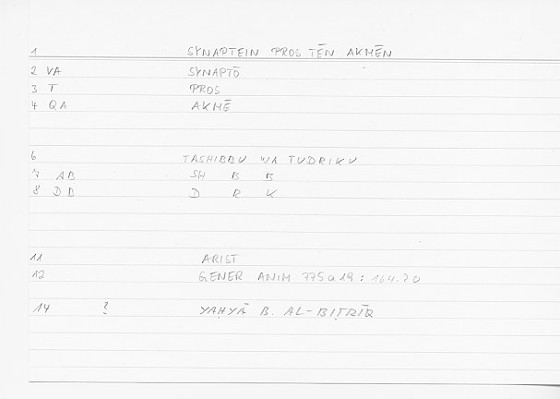 1 SYNAPTEIN PROS TĒN AKMĒN
2 VA SYNAPTŌ
3 T PROS
4 QA AKMĒ
6 TASHIBBU WA TUDRIKU
7 AB SH B B
8 DB D R K
11 ARIST
12 GENER ANIM 775a19 : 164.20
14 ? YAḤYĀ B. AL-BIṬRĪQ